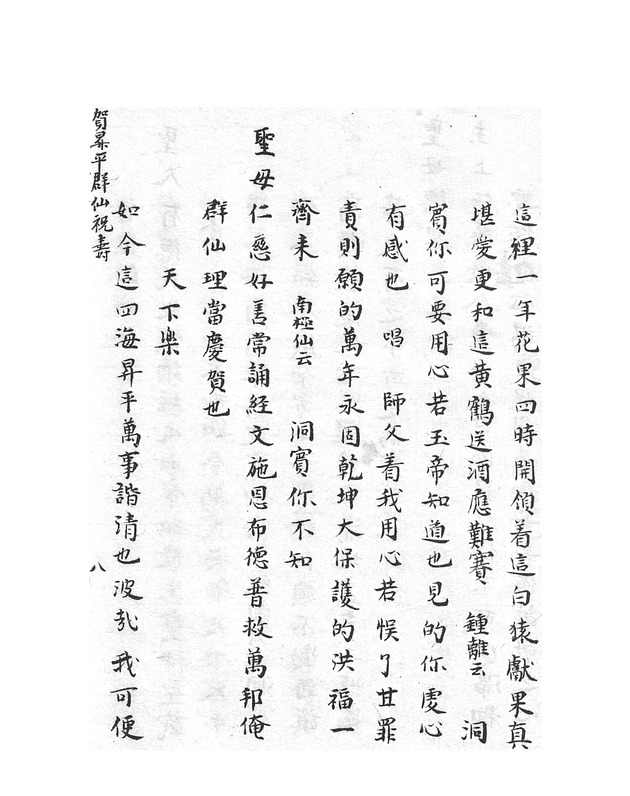 這裡一年花果四時開領着這白猿獻果真
堪愛更和這黃鶴送酒應難賽 鍾離云 洞
賓你可要用心若玉帝知道也見的你虔心
有感也 唱 師父着我用心若悞了甘罪
責則願的萬年永固乾坤大保護的洪福一
齊來 南極仙云 洞賓你不知
聖母仁慈好善常誦經文施恩布德普救萬邦俺
群仙理當慶賀也
天下樂
如今這四海昇平萬事諧清也波哉我可便
賀昇平群仙祝壽
八